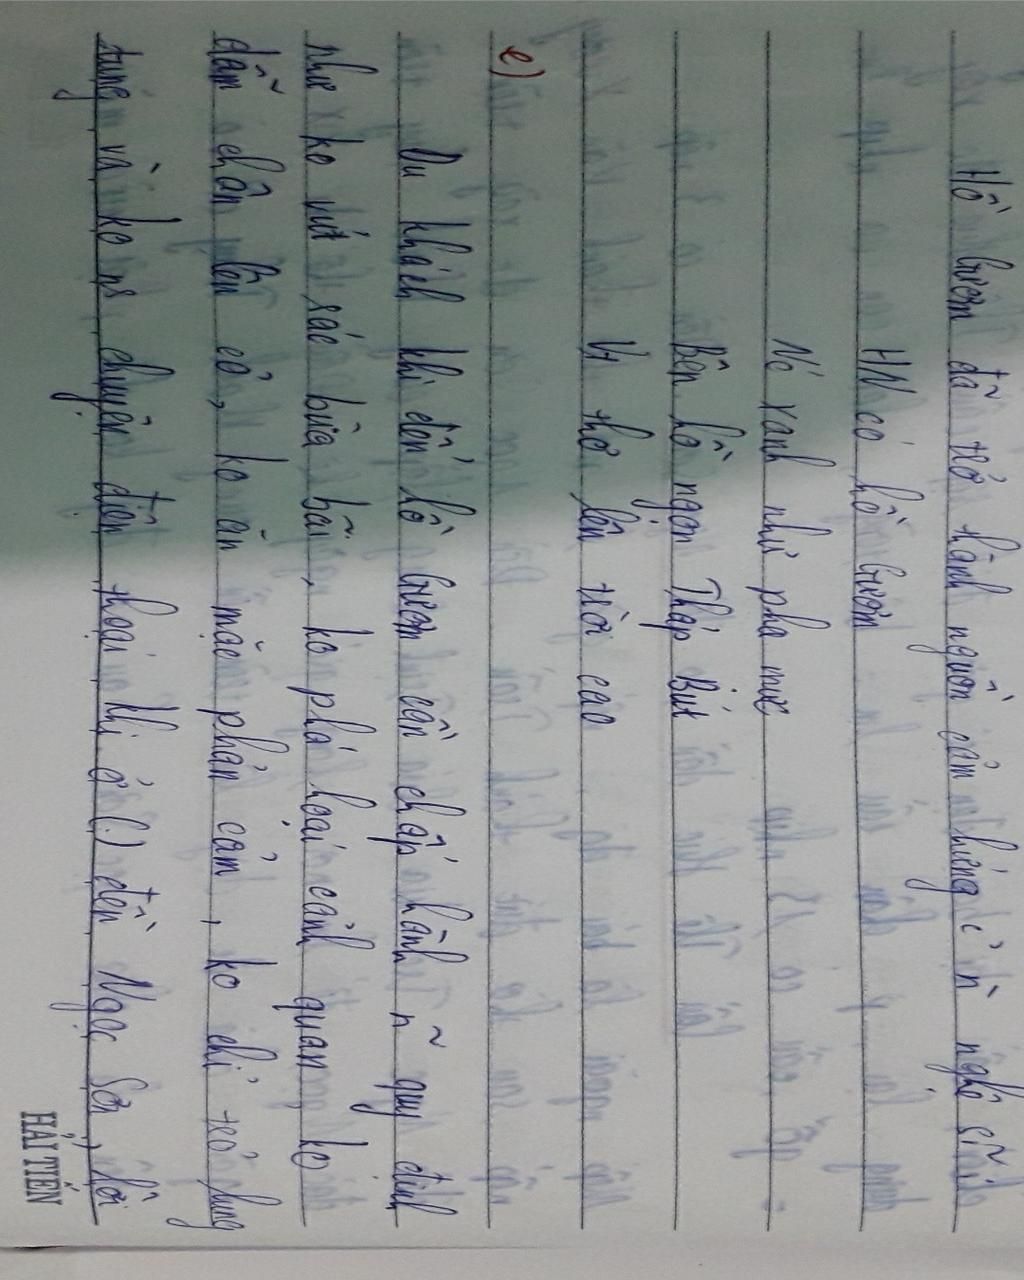 Hồ Gươm đã trở thành nguồn cảm hứng c' n` nghệ sĩ
HN có hồ Gươm
Nc' xanh như pha mực
Bên hồ ngọn Tháp Bút
Vt thơ lên trời cao
e)
Du khách khi đến hồ Gươm cần chấp hành n~ quy định
như ko vứt rác bừa bãi, ko phá hoại cảnh quan, ko
dẫm chân lên cỏ, ko ăn mặc phản cảm, ko chỉ trỏ lung
tung và ko ns chuyện điện thoại khi ở (.) đền Ngọc Sơn,
HẢI TIẾN